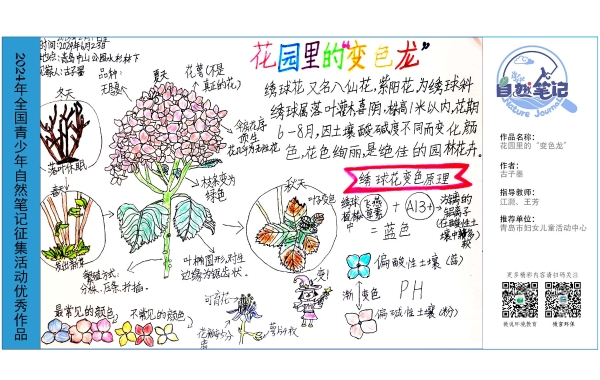 2024年全国青少年自然笔记征集活动优秀作品
时间:2024年6月23日
地点:青岛中山公园水杉林下
记录人:古子墨
品种:
无尽夏
花萼(不是
真正的花)
花园里的“变色龙”
绣球花又名八仙花,紫阳花,为绣球科
绣球属落叶灌木喜阴,株高1米以内,花期
6-8月,因土壤酸碱度不同而变化颜
色,花色绚丽,是绝佳的园林花卉。
冬天
落叶休眠
夏天
伞房花序
顶生
枝条变为
绿色
春天
发出新芽
繁殖方式:
分株、压条、扦插。
叶椭圆形,对生
边缘为锯齿状。
秋天
叶子变色
绣球花变色原理
绣球
+
Al3+
=蓝色
偏酸性土壤(蓝)
渐变色
PH
偏碱性土壤(粉)
变!
可育花
最常见的颜色
不常见的颜色
自然笔记
Nature Journal
作品名称:
花园里的“变色龙”
作者:
古子墨
指导教师:
江灏、王芳
推荐单位:
青岛市妇女儿童活动中心
更多精彩内容请扫码关注
微说环境教育
微言环保